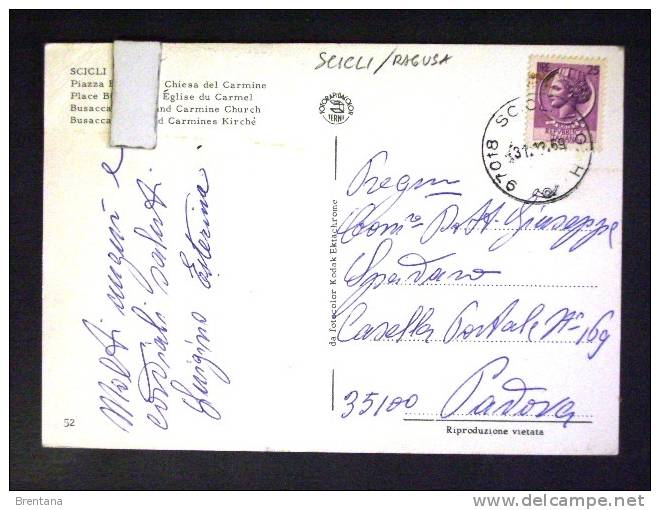 SCICLI
Piazza Chiesa del Carmine
Place Église du Carmel
Busacca and Carmine Church
Busacca Carmines Kirché
SCICLI/RAGUSA
FOTORAPIDACOLOR
TERNI
25
97018 SCICLI
31.12.69
Molti auguri e
cordiali saluti
Luigino Esterina
da fotocolor Kodak Ektachrome
Pregm
Comm. Dott. Giuseppe
Spadaro
Casella Postale N° 169
35100 Padova
52
Riproduzione vietata
Brentana
delcampe.net